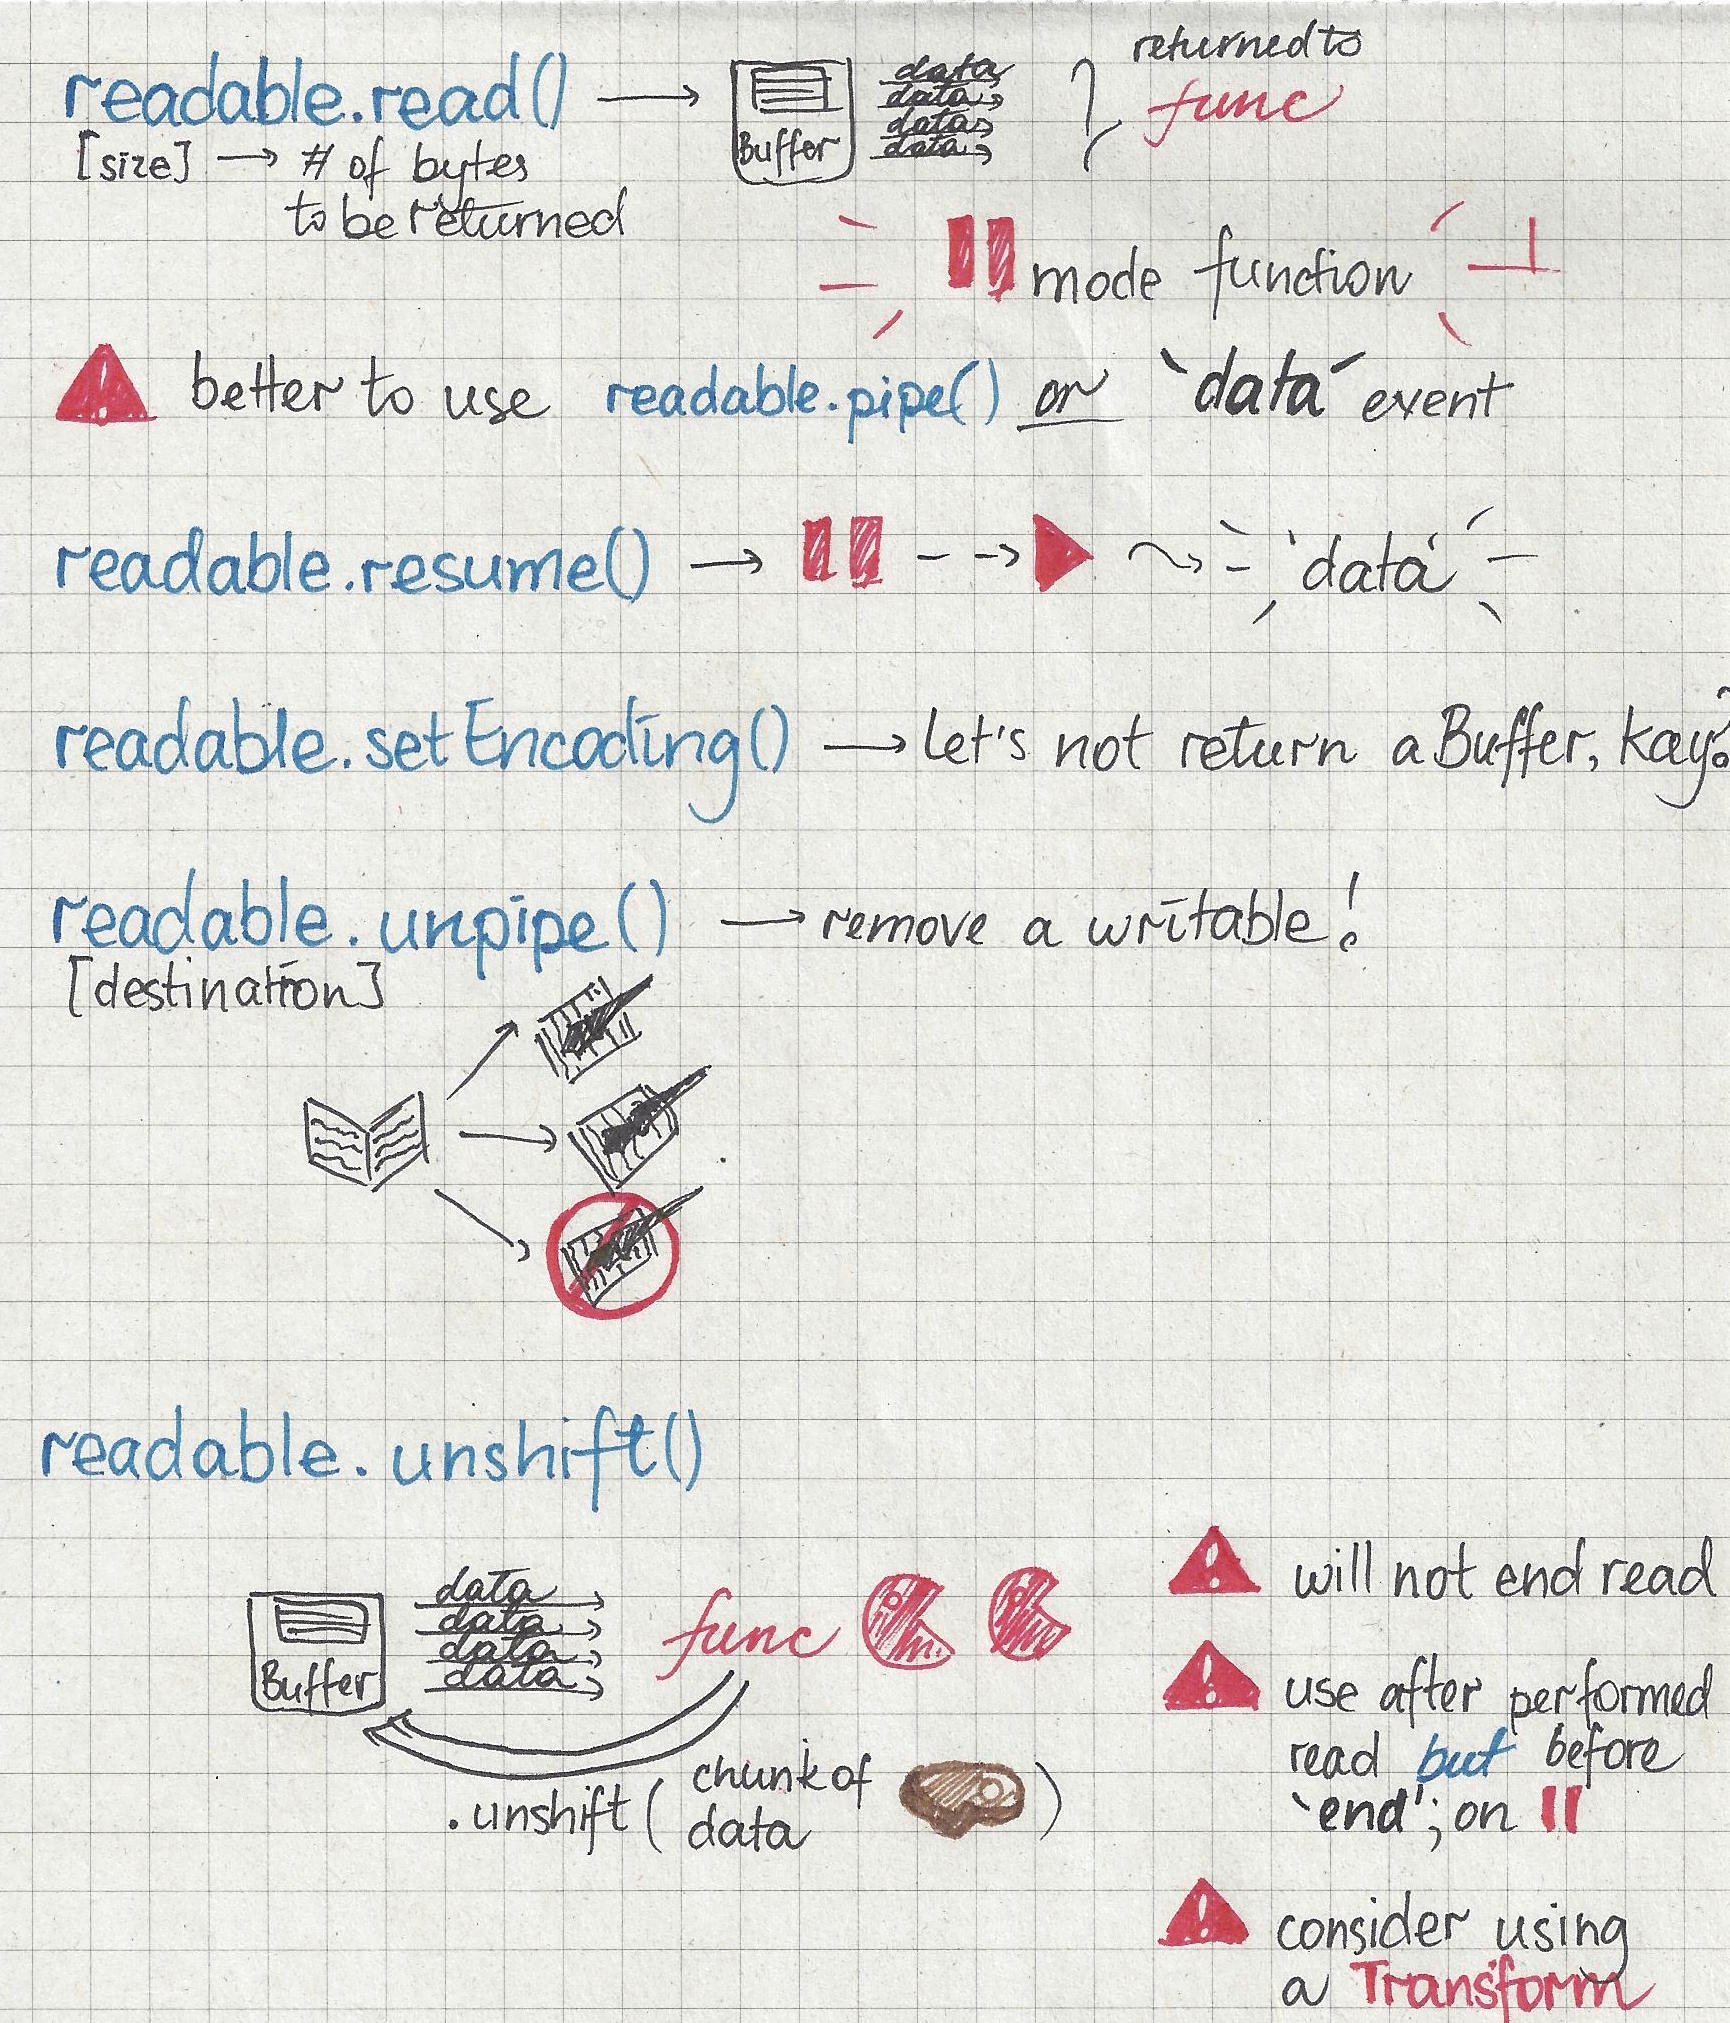 readable.read() → Buffer data data data data } returned to func
[size] → # of bytes
to be returned
mode function
! better to use readable.pipe() or `data´ event
readable.resume() → 'data'
readable.setEncoding() → Let's not return a Buffer, kay?
readable.unpipe() → remove a writable!
[destination]
readable.unshift()
Buffer
data
data
data
data
func
.unshift( chunk of
data )
! will not end read
! use after performed
read but before
`end'; on
! consider using
a Transform